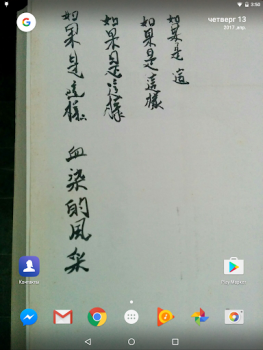 четверг 13
2017, апр.
如果是 這
如果是這樣
如果是這樣
如果是這樣 血染的風采
Контакты
Play Маркет